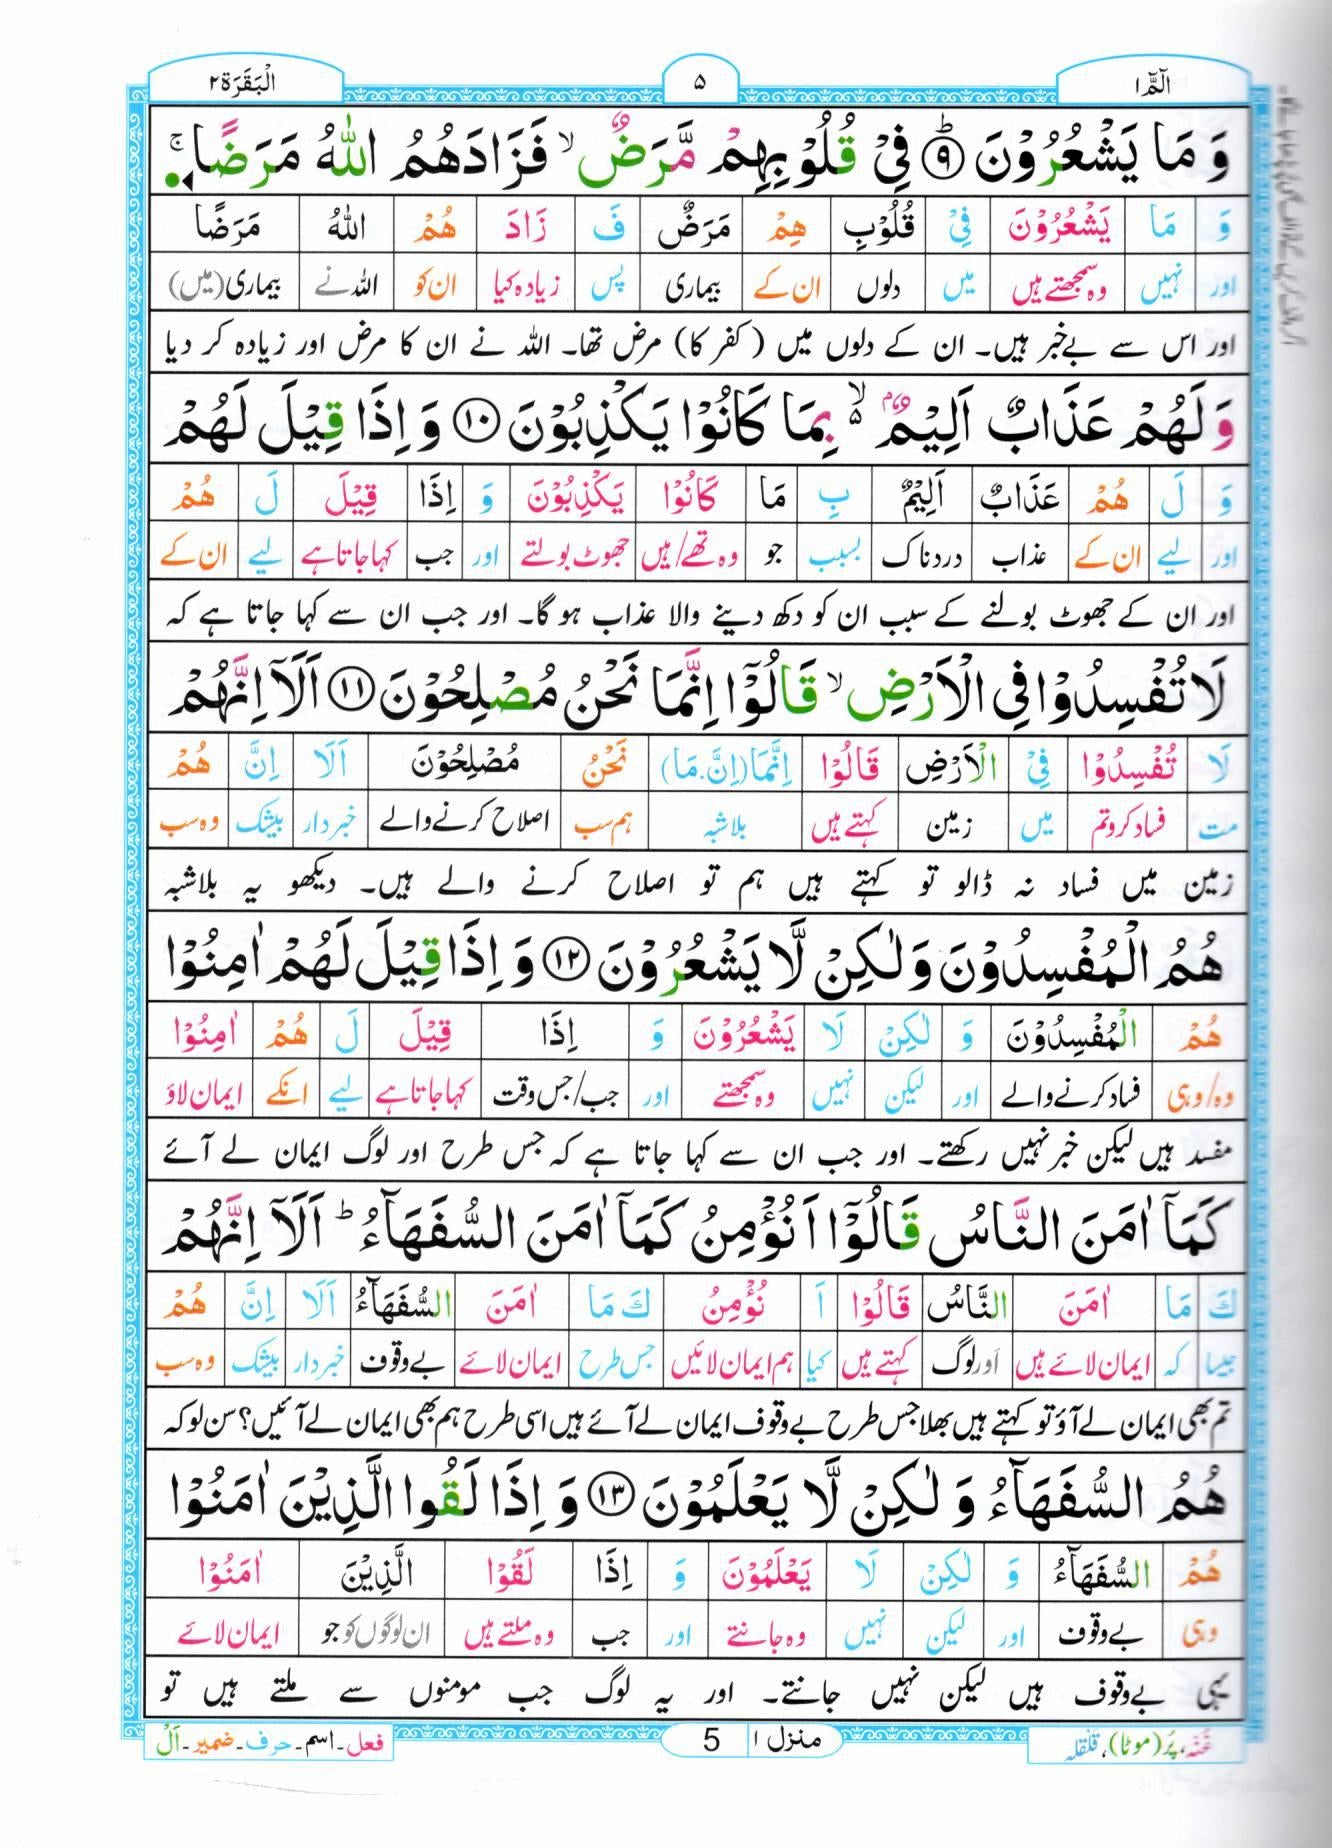 الٓمّٓ ١
٥
الْبَقَرَة ٢
وَ مَا يَشْعُرُوْنَ ۹ فِىْ قُلُوْبِهِمْ مَّرَضٌ ۙ فَزَادَهُمُ اللهُ مَرَضًا ۚ
وَ مَا يَشْعُرُوْنَ فِىْ قُلُوْبِ هِمْ مَرَضٌ فَ زَادَ هُمْ اللهُ مَرَضًا
اور نہیں وہ سمجھتے ہیں میں دلوں ان کے بیماری پس زیادہ کیا ان کو اللہ نے بیماری (میں)
اور اس سے بےخبر ہیں۔ ان کے دلوں میں (کفر کا) مرض تھا۔ اللہ نے ان کا مرض اور زیادہ کر دیا
وَلَهُمْ عَذَابٌ اَلِيْمٌۢ ۙ۬ بِمَا كَانُوْا يَكْذِبُوْنَ ۱۰ وَ اِذَا قِيْلَ لَهُمْ
وَ لَ هُمْ عَذَابٌ اَلِيْمٌ بِ مَا كَانُوْا يَكْذِبُوْنَ وَ اِذَا قِيْلَ لَ هُمْ
اور لیے ان کے عذاب دردناک بسبب جو وہ تھے/ہیں جھوٹ بولتے اور جب کہا جاتا ہے لیے ان کے
اور ان کے جھوٹ بولنے کے سبب ان کو دکھ دینے والا عذاب ہو گا۔ اور جب ان سے کہا جاتا ہے کہ
لَا تُفْسِدُوْا فِى الْاَرْضِ ۙ قَالُوْٓا اِنَّمَا نَحْنُ مُصْلِحُوْنَ ۱۱ اَلَآ اِنَّهُمْ
لَا تُفْسِدُوْا فِىْ الْاَرْضِ قَالُوْا اِنَّمَا (اِنَّ.مَا) نَحْنُ مُصْلِحُوْنَ اَلَا اِنَّ هُمْ
مت فساد کرو تم میں زمین کہتے ہیں بلاشبہ ہم سب اصلاح کرنے والے خبردار بیشک وہ سب
زمین میں فساد نہ ڈالو تو کہتے ہیں ہم تو اصلاح کرنے والے ہیں۔ دیکھو یہ بلاشبہ
هُمُ الْمُفْسِدُوْنَ وَلٰكِنْ لَّا يَشْعُرُوْنَ ۱۲ وَ اِذَا قِيْلَ لَهُمْ اٰمِنُوْا
هُمْ الْمُفْسِدُوْنَ وَ لٰكِنْ لَا يَشْعُرُوْنَ وَ اِذَا قِيْلَ لَ هُمْ اٰمِنُوْا
وہ/وہی فساد کرنے والے اور لیکن نہیں وہ سمجھتے اور جب/جس وقت کہا جاتا ہے لیے انکے ایمان لاؤ
مفسد ہیں لیکن خبر نہیں رکھتے۔ اور جب ان سے کہا جاتا ہے کہ جس طرح اور لوگ ایمان لے آئے
كَمَآ اٰمَنَ النَّاسُ قَالُوْٓا اَنُؤْمِنُ كَمَآ اٰمَنَ السُّفَهَآءُ ؕ اَلَآ اِنَّهُمْ
كَ مَا اٰمَنَ النَّاسُ قَالُوْا اَ نُؤْمِنُ كَ مَا اٰمَنَ السُّفَهَآءُ اَلَا اِنَّ هُمْ
جیسا کہ ایمان لائے ہیں اور لوگ کہتے ہیں کیا ہم ایمان لائیں جس طرح ایمان لائے بے وقوف خبردار بیشک وہ سب
تم بھی ایمان لے آؤ تو کہتے ہیں بھلا جس طرح بے وقوف ایمان لے آئے ہیں اسی طرح ہم بھی ایمان لے آئیں؟ سن لو کہ
هُمُ السُّفَهَآءُ وَ لٰكِنْ لَّا يَعْلَمُوْنَ ۱۳ وَ اِذَا لَقُوا الَّذِيْنَ اٰمَنُوْا
هُمْ السُّفَهَآءُ وَ لٰكِنْ لَا يَعْلَمُوْنَ وَ اِذَا لَقُوْا الَّذِيْنَ اٰمَنُوْا
وہی بے وقوف اور لیکن نہیں وہ جانتے اور جب وہ ملتے ہیں ان لوگوں کو جو ایمان لائے
یہی بے وقوف ہیں لیکن نہیں جانتے۔ اور یہ لوگ جب مومنوں سے ملتے ہیں تو
غنّہ، پُر (موٹا)، قلقلہ
منزل ۱ 5
فعل۔ اسم۔ حرف۔ ضمیر۔ اَلْ